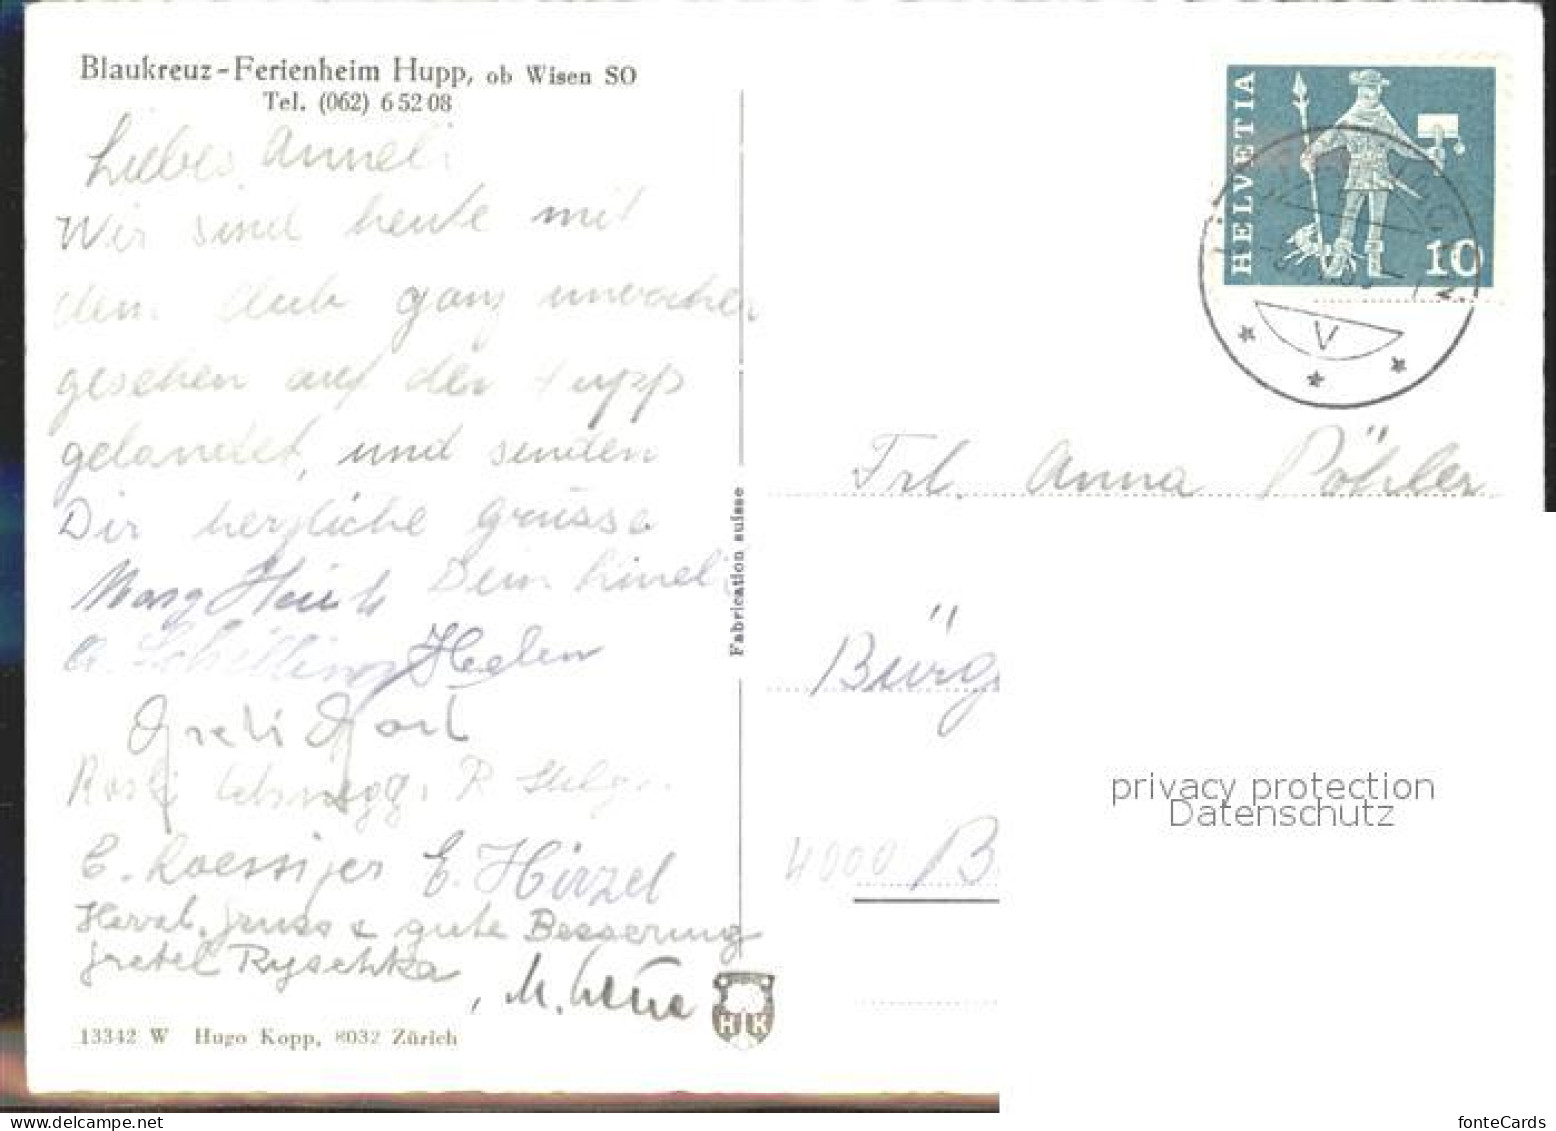 Blaukreuz-Ferienheim Hupp, ob Wisen SO
Tel. (062) 6 52 08
Liebes Anneli
Wir sind heute mit
dem Club ganz unvorher
gesehen auf der Hupp
gelandet, und senden
Dir herzliche Grüsse
Dein
G. Schilling Helen
Greti
Rösli R.
E. Roessiger E. Hirzel
Herzl. Gruss & gute Besserung
Gretel Ryschka, M.
13342 W Hugo Kopp, 8032 Zürich
Fabrication suisse
H K
HELVETIA
10
V
Frl. Anna Pöhler
Bürg
4000 B
privacy protection
Datenschutz
www.delcampe.net
fonteCards